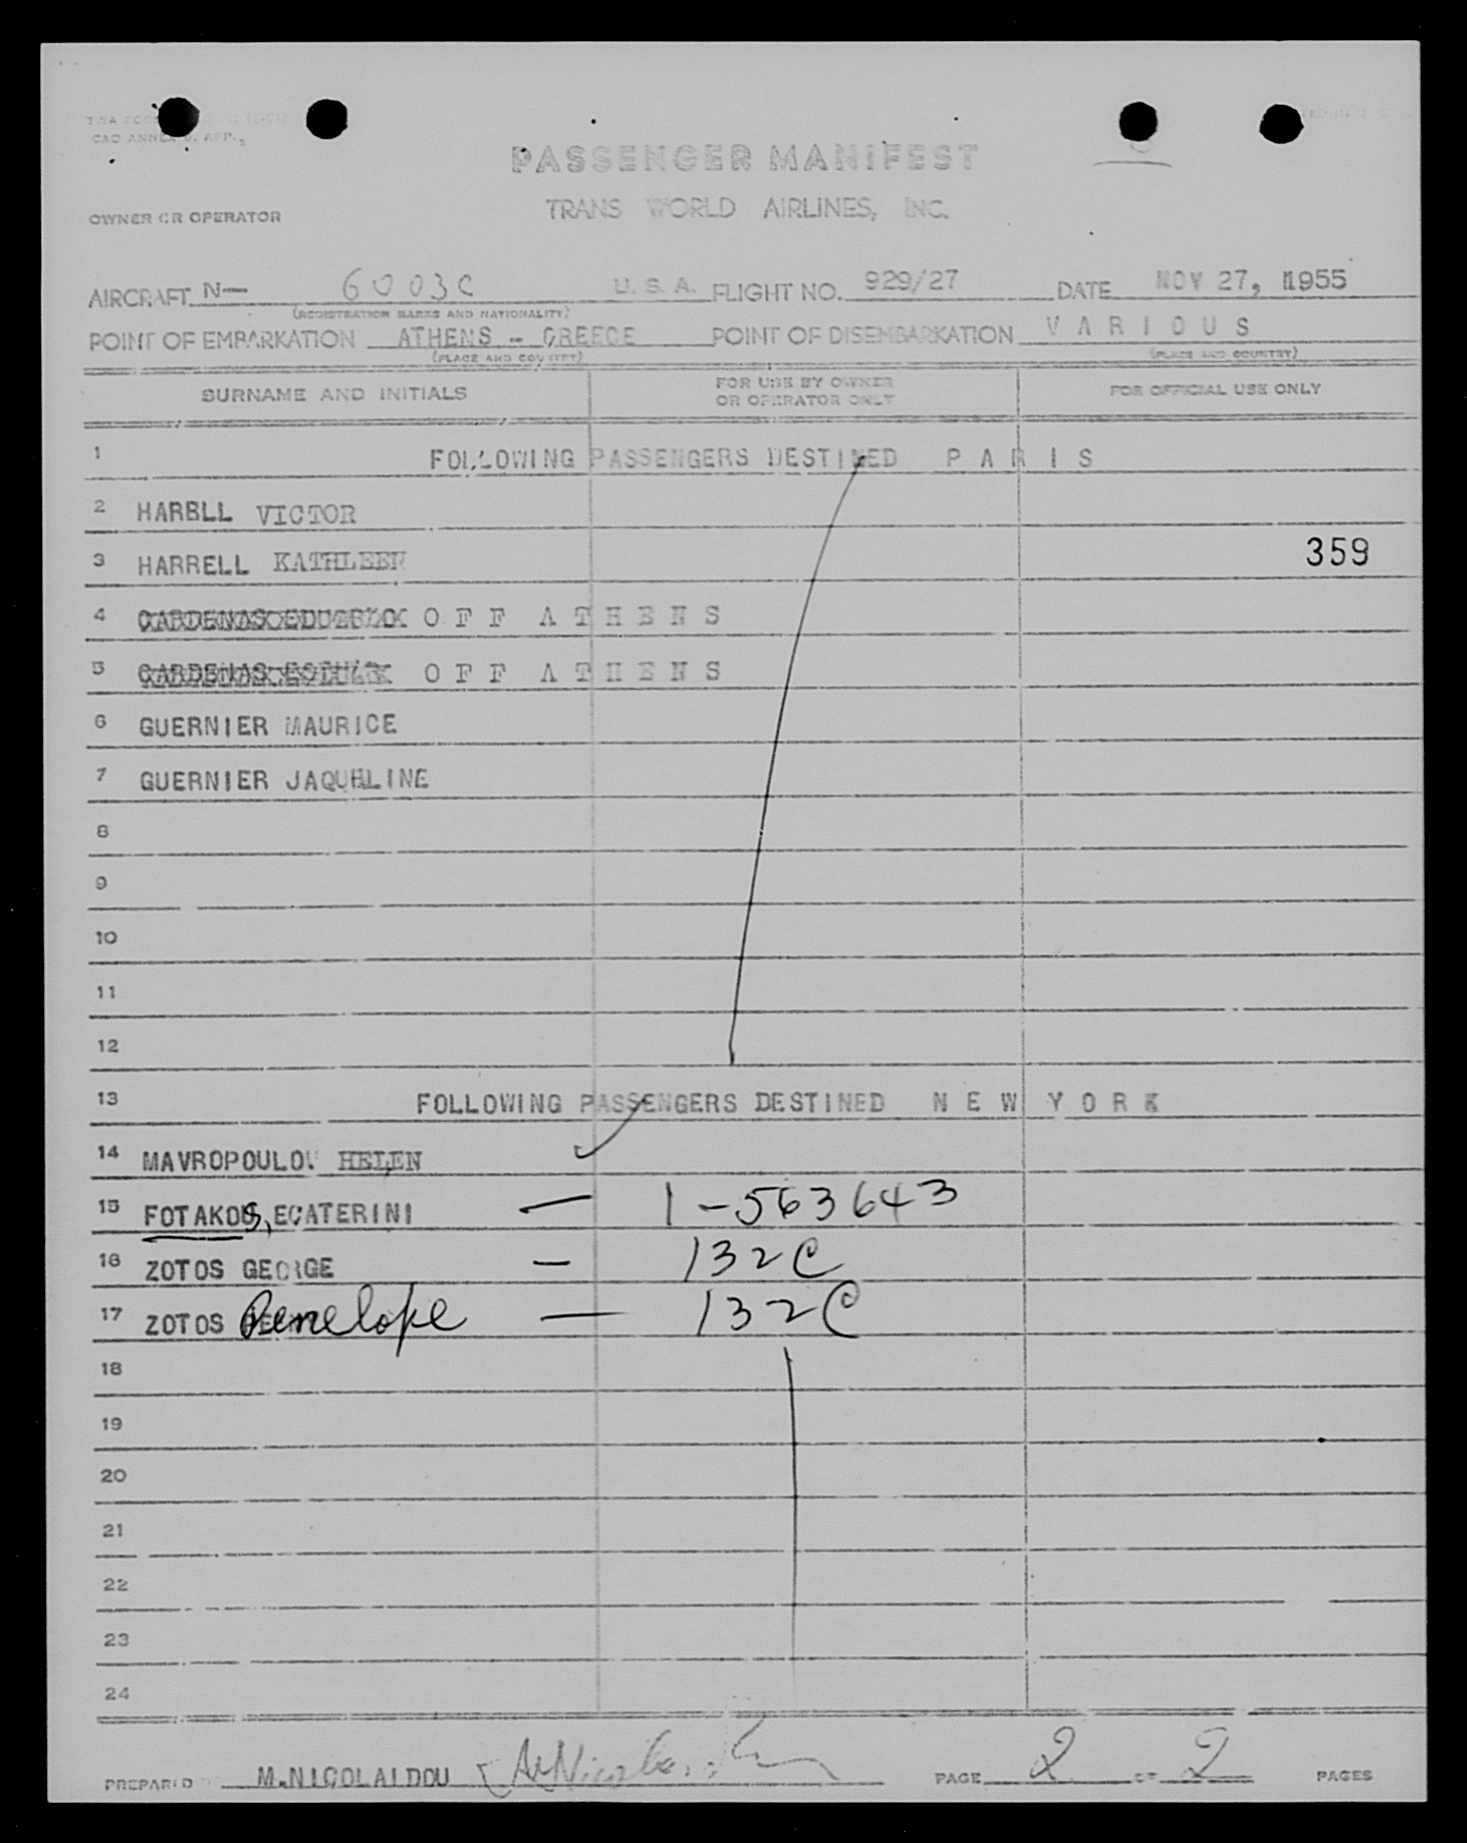 PASSENGER MANIFEST
OWNER OR OPERATOR TRANS WORLD AIRLINES, INC.
AIRCRAFT N— 6003C U. S. A. FLIGHT NO. 929/27 DATE NOV 27, 1955
(REGISTRATION MARKS AND NATIONALITY)
POINT OF EMBARKATION ATHENS - GREECE POINT OF DISEMBARKATION VARIOUS
(PLACE AND COUNTRY) (PLACE AND COUNTRY)
SURNAME AND INITIALS FOR USE BY OWNER OR OPERATOR ONLY FOR OFFICIAL USE ONLY
1 FOLLOWING PASSENGERS DESTINED PARIS
2 HARBLL VICTOR
3 HARRELL KATHLEEN 359
4 OFF ATHENS
5 OFF ATHENS
6 GUERNIER MAURICE
7 GUERNIER JAQUELINE
8
9
10
11
12
13 FOLLOWING PASSENGERS DESTINED NEW YORK
14 MAVROPOULOU HELEN
15 FOTAKOS, ECATERINI — 1-563643
16 ZOTOS GEORGE — 132C
17 ZOTOS Penelope — 132C
18
19
20
21
22
23
24
PREPARED M.NICOLAIDOU PAGE 2 OF 2 PAGES